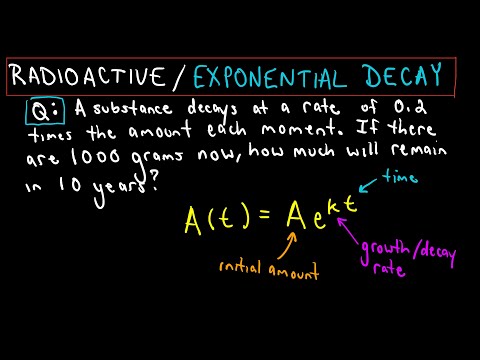 RADIOACTIVE / EXPONENTIAL DECAY
Q: A substance decays at a rate of 0.2
times the amount each moment. If there
are 1000 grams now, how much will remain
in 10 years?
time
A(t) = A e^kt
initial amount
growth/decay
rate